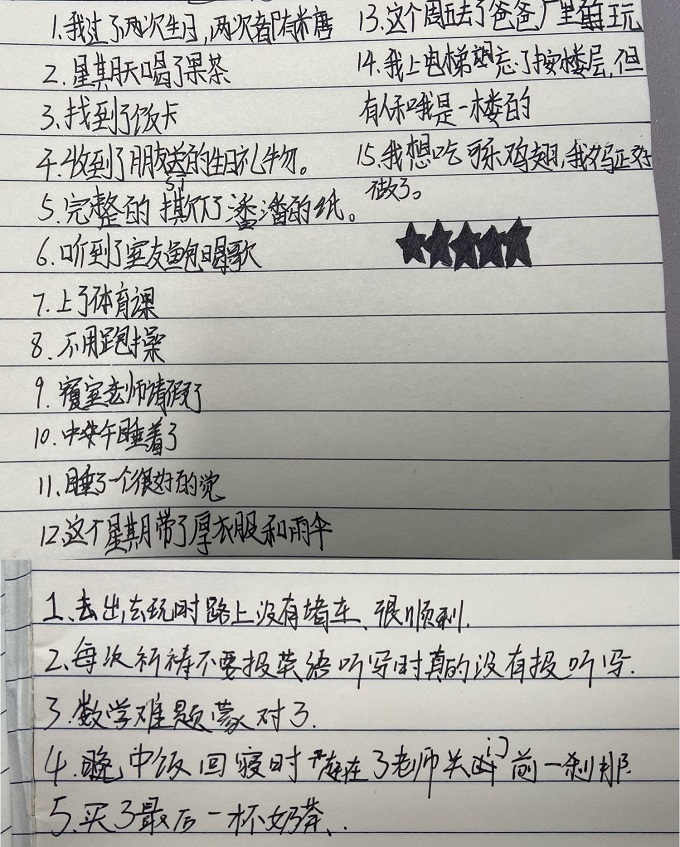 1.我过了两次生日,两次都有米唐
2.星期天喝了果茶
3.找到了饭卡
4.收到了朋友送的生日礼物。
5.完整的撕下了潘潘的纸。
6.听到了室友鲍唱歌
7.上了体育课
8.不用跑操
9.寝室老师请假了
10.中午睡着了
11.睡了一个很好的觉
12.这个星期带了厚衣服和雨伞
13.这个周五去了爸爸厂里玩
14.我上电梯忘了按楼层,但
有人和我是一楼的
15.我想吃可乐鸡翅,我妈正好
做了。
1.去出去玩时路上没有堵车、很顺利.
2.每次祈祷不要报英语听写时真的没有报听写.
3.数学难题蒙对了.
4.中饭回寝时赶在了老师关门前一刹那.
5.买了最后一杯奶茶.